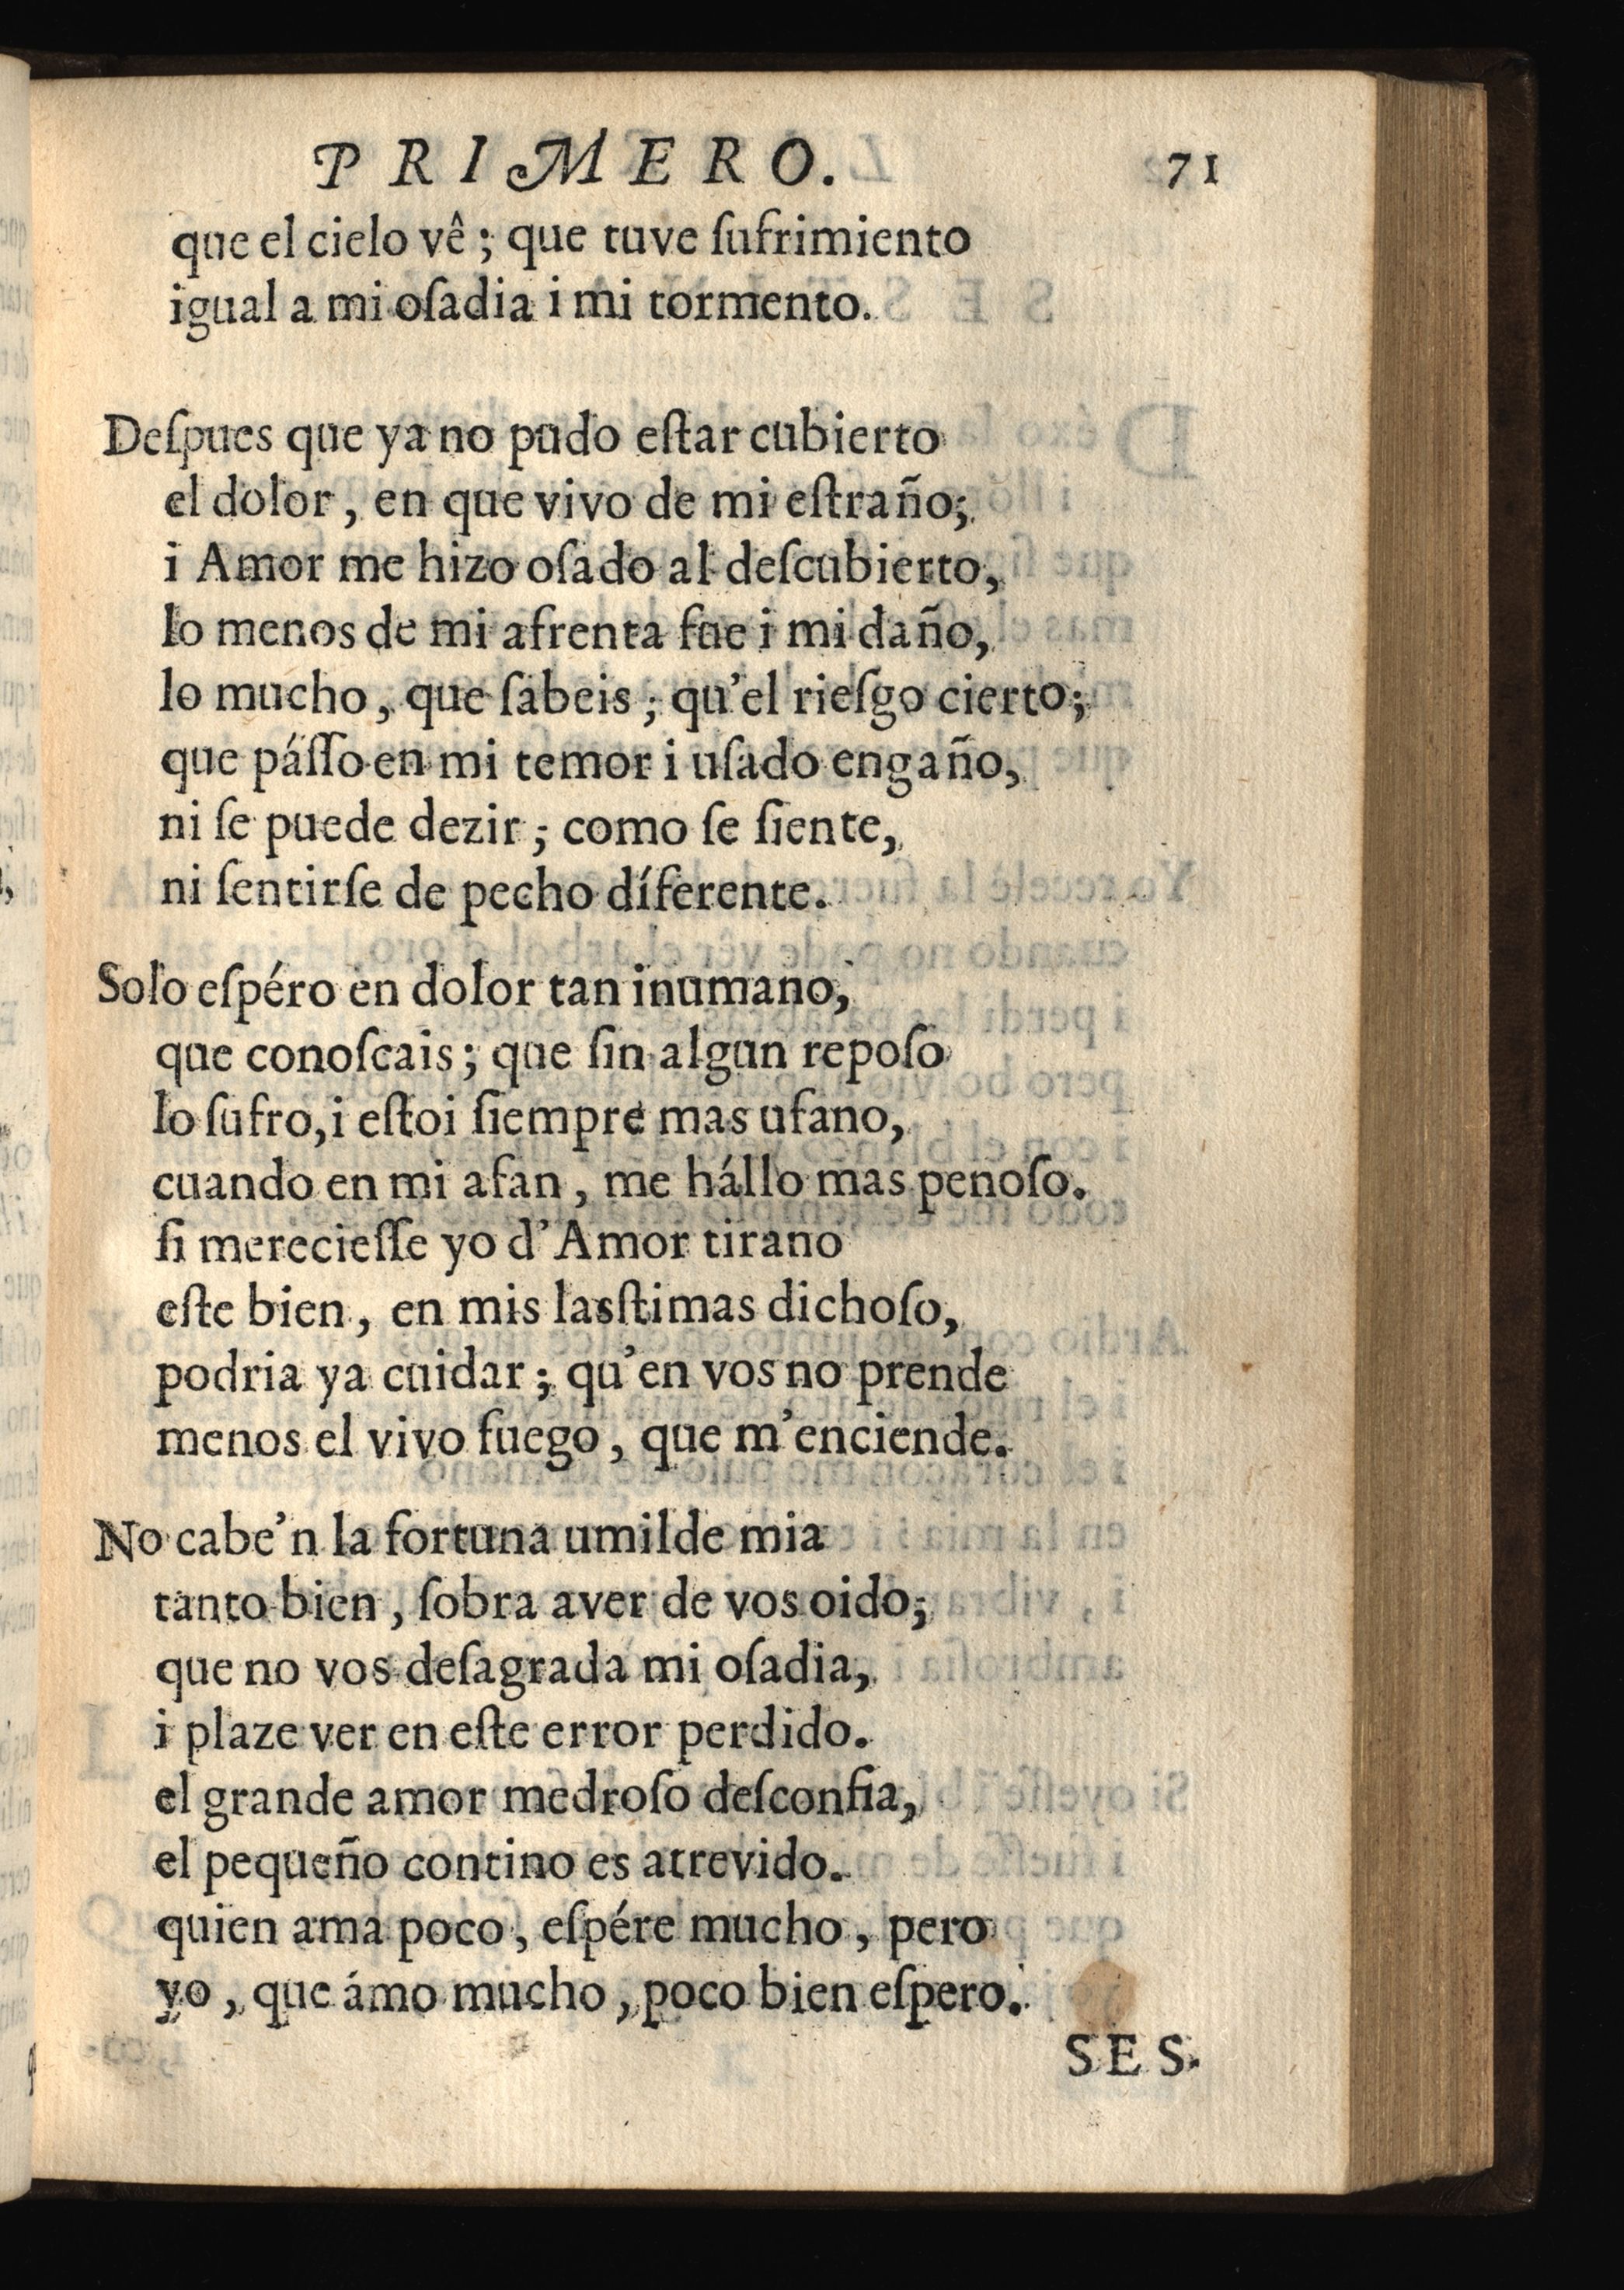 PRIMERO. 71
que el cielo vê; que tuve ſufrimiento
igual a mi oſadia i mi tormento.
Deſpues que ya no pudo eſtar cubierto
el dolor, en que vivo de mi eſtraño;
i Amor me hizo oſado al deſcubierto,
lo menos de mi afrenta fue i mi daño,
lo mucho, que ſabeis; qu'el rieſgo cierto;
que páſſo en mi temor i uſado engaño,
ni ſe puede dezir; como ſe ſiente,
ni ſentirſe de pecho díferente.
Solo eſpéro en dolor tan inumano,
que conoſcais; que ſin algun repoſo
lo ſufro, i eſtoi ſiempre mas ufano,
cuando en mi afan, me hállo mas penoſo.
ſi mereciеſſe yo d'Amor tirano
eſte bien, en mis lasſtimas dichoſo,
podria ya cuidar; qu'en vos no prende
menos el vivo fuego, que m'enciende.
No cabe'n la fortuna umilde mia
tanto bien, ſobra aver de vos oido;
que no vos deſagrada mi oſadia,
i plaze ver en eſte error perdido.
el grande amor medroſo deſconfia,
el pequeño contino es atrevido.
quien ama poco, eſpére mucho, pero
yo, que ámo mucho, poco bien eſpero.
SES-